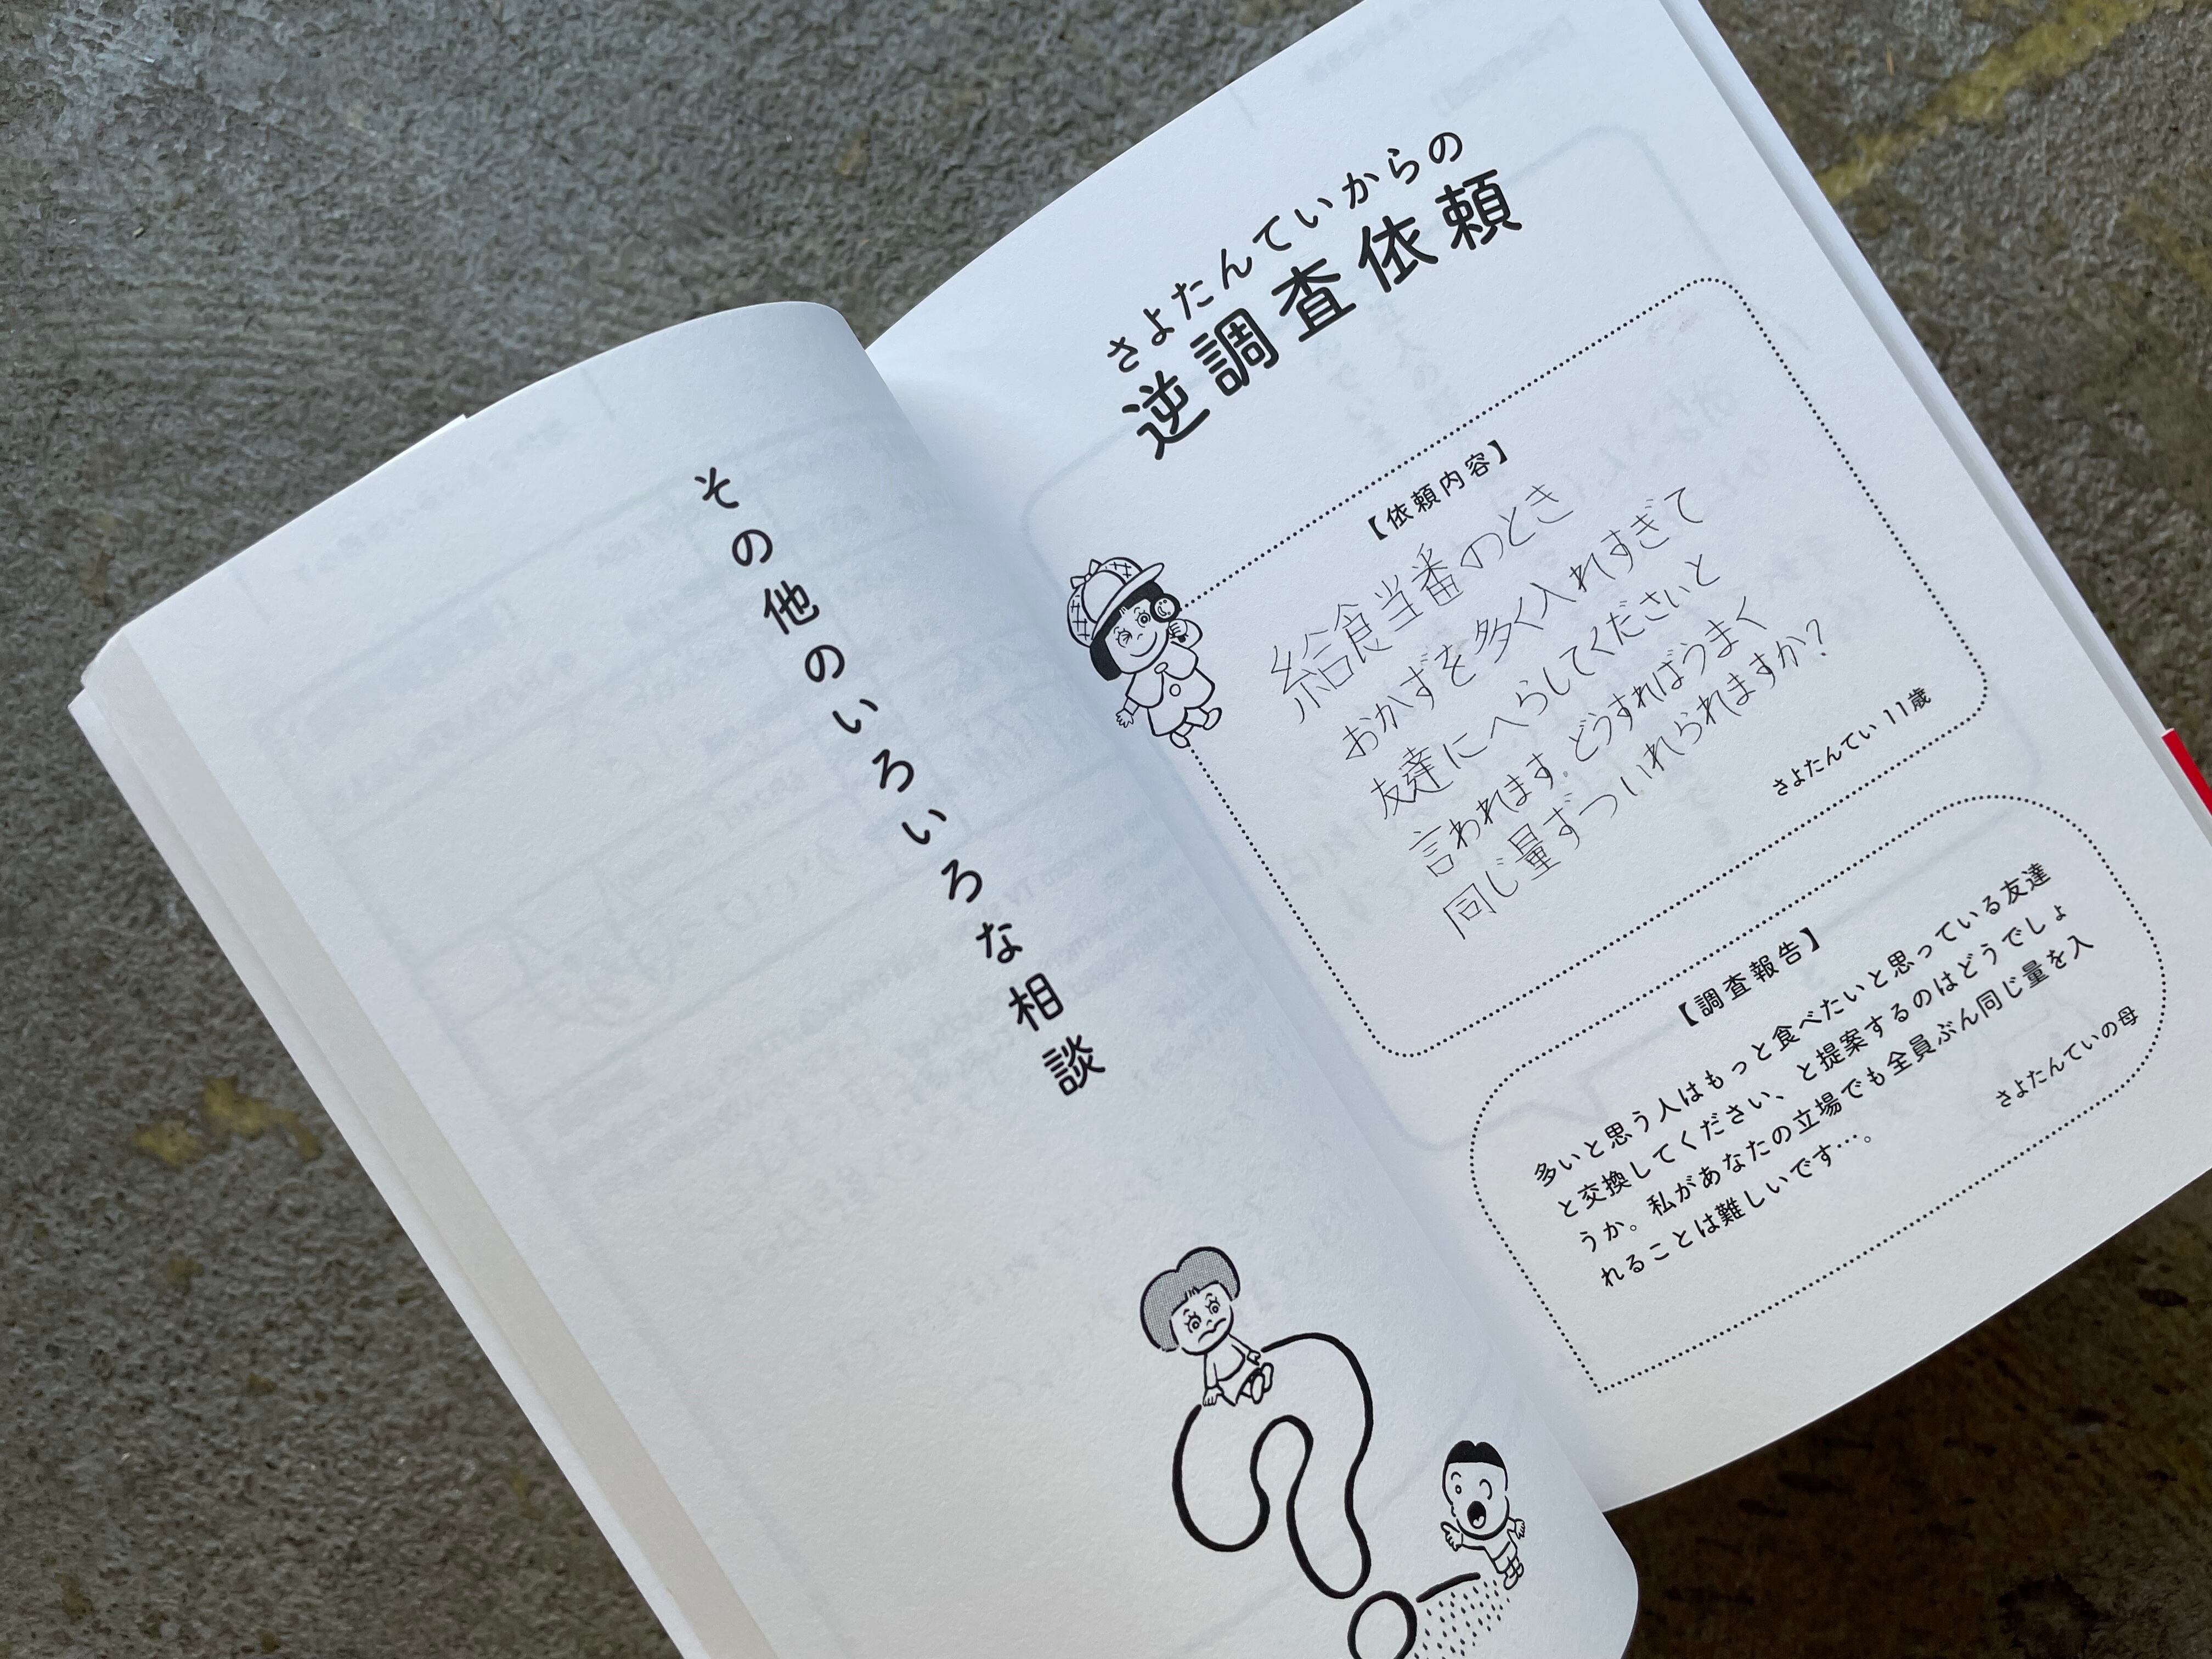 その他のいろいろな相談
さよたんていからの
逆調査依頼
【依頼内容】
給食当番のとき
おかずを多く入れすぎて
友達にへらしてくださいと
言われます。どうすればうまく
同じ量ずついれられますか?
さよたんてい 11歳
【調査報告】
多いと思う人はもっと食べたいと思っている友達
と交換してください、と提案するのはどうでしょ
うか。私があなたの立場でも全員ぶん同じ量を入
れることは難しいです…。
さよたんていの母